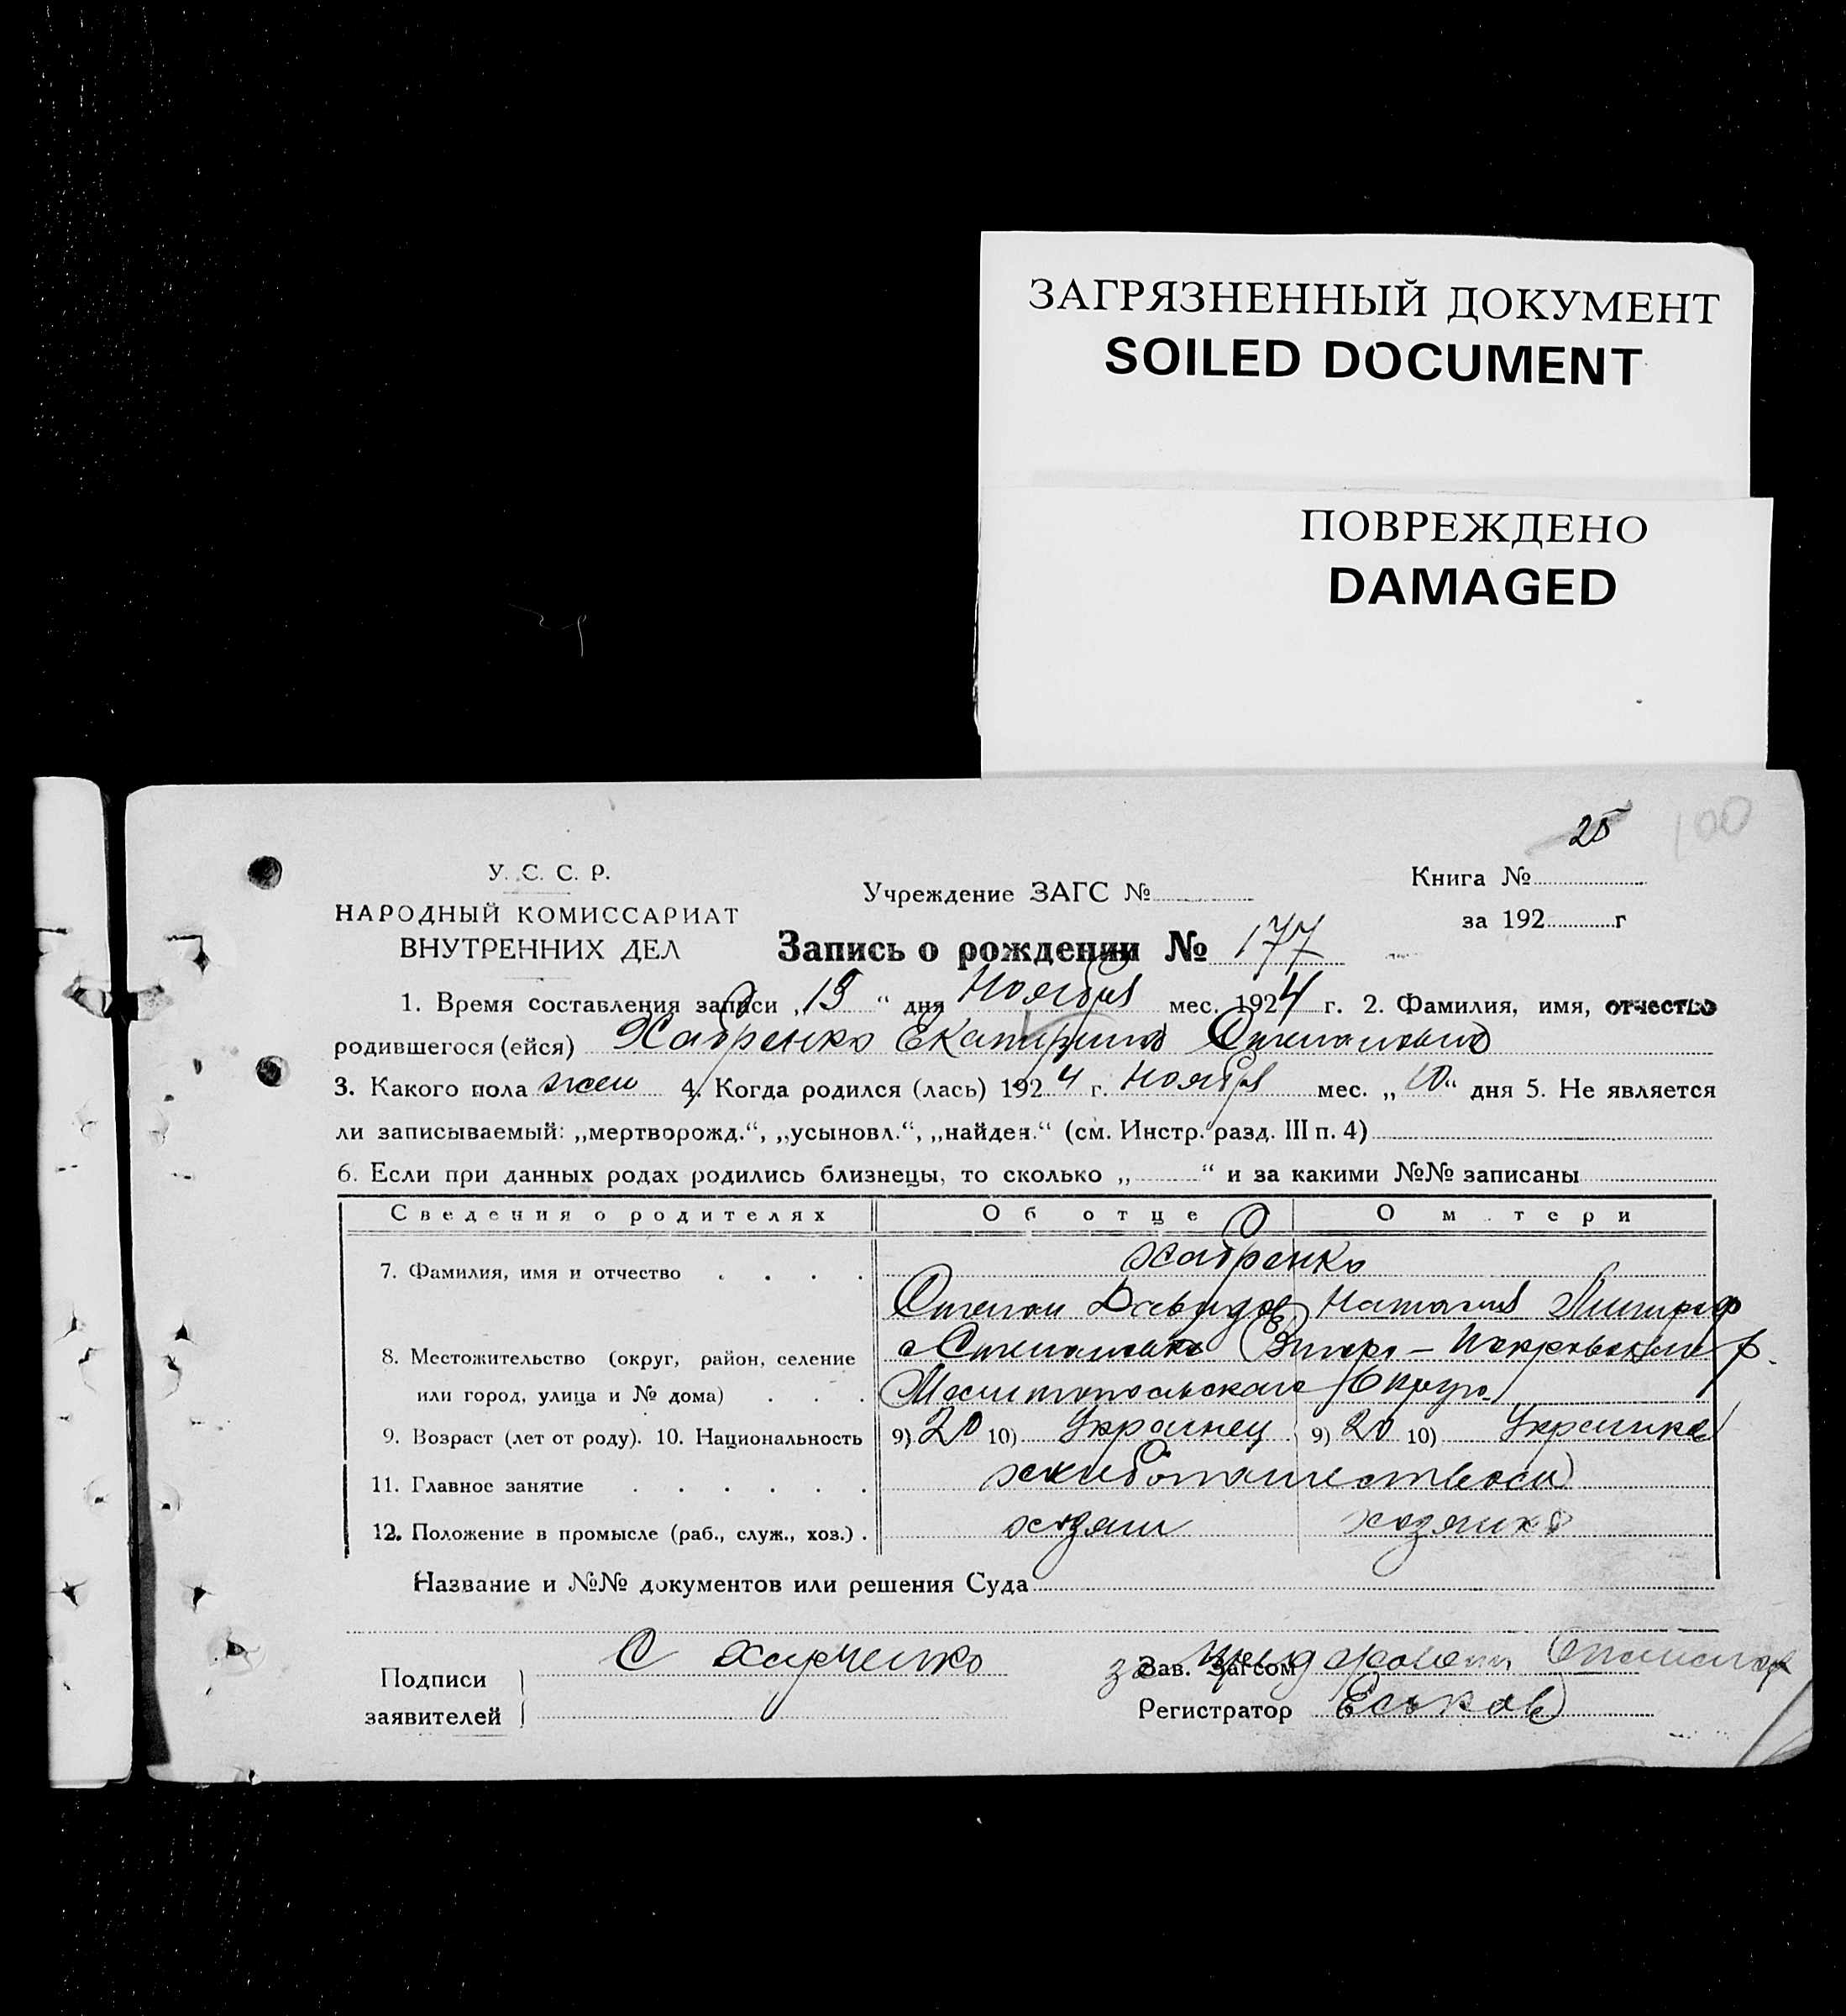 ЗАГРЯЗНЕННЫЙ ДОКУМЕНТ
SOILED DOCUMENT
ПОВРЕЖДЕНО
DAMAGED
25 100
У. С. С. Р.
НАРОДНЫЙ КОМИССАРИАТ
ВНУТРЕННИХ ДЕЛ
Учреждение ЗАГС №
Книга №
за 192 г
Запись о рождении № 177
1. Время составления записи „ 19 “ дня Ноября мес. 1924 г. 2. Фамилия, имя, отчество
родившегося (ейся) Хабренко Екатирина Степановна
3. Какого пола жен 4. Когда родился (лась) 1924 г. Ноября мес. „ 10 “ дня 5. Не является
ли записываемый: „мертворожд.“, „усыновл.“, „найден.“ (см. Инстр. разд. III п. 4)
6. Если при данных родах родились близнецы, то сколько „ “ и за какими №№ записаны
Сведения о родителях Об отце О м тери
7. Фамилия, имя и отчество Хабренко
Степан Давидов Наталия
8. Местожительство (округ, район, селение с Степановка - Покровский р.
или город, улица и № дома) Мелитопольского Округа
9. Возраст (лет от роду). 10. Национальность 9) 20 10) Украинец 9) 20 10) Украинка
11. Главное занятие хлибопашеством
12. Положение в промысле (раб., служ., хоз.) . хозяин хозяйка
Название и №№ документов или решения Суда
Подписи
заявителей
С Харченко
за Зав. Загсом
Регистратор Еськов